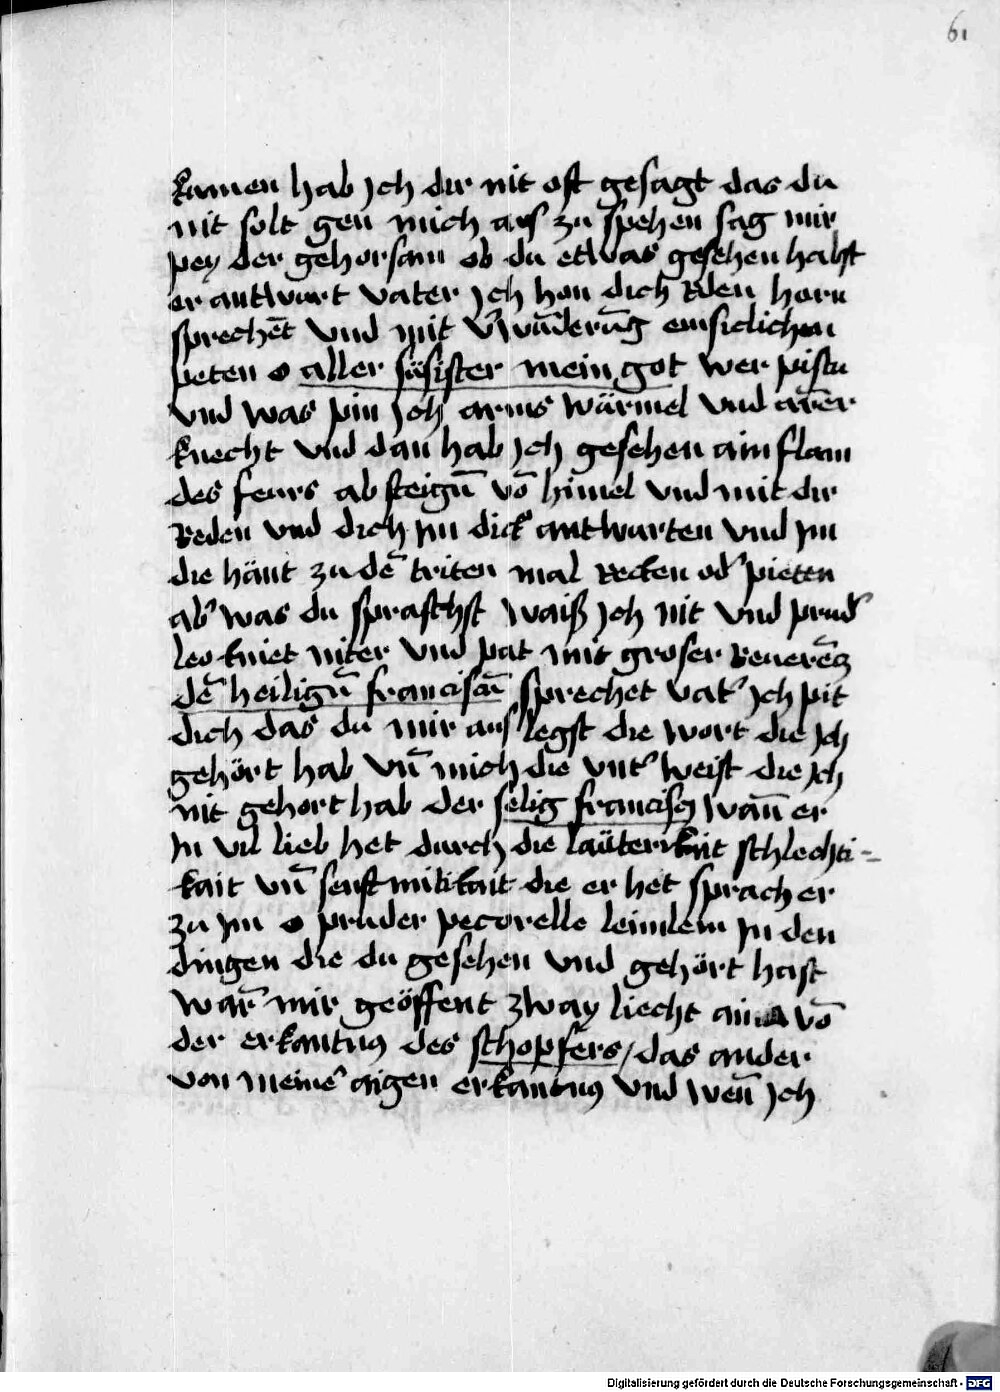 61
kumen hab jch dir nit oft gesagt das du
nit solt gen mich aus zu spehen sag mir
pey der gehorsam ob du etwas gesehen habst
er antwurt vater jch hon dich Reden horn
sprechēt vnd mit v̉wūderūg einsiclichen
peten o aller süsister mein got wer pistu
vnd was pin jch arms würmel vnd armer
knecht vnd dan hab jch gesehen ain flam
des feurs ab steigñ vō himel vnd mit dir
Reden vnd dich im dick antwurten vnd im
die hänt zu dē triten mal Recken od' pieten
ab' was du sprachst waiß jch nit vnd prud'
leo kniet niter vnd pat mit groser Reuerēcz
dē heiligñ franciscū sprechet vat' jch pit
dich das du mir aus legst die wort die jch
gehört hab vñ mich die vnt' weist die jch
nit gehort hab der selig franciscꝯ wañ er
in vil lieb het durch die lauterkait schlechti-
kait vñ senftmitikait die er het sprach er
zu im o pruder pecorelle lemlein in den
dingen die du gesehen vnd gehört hast
war̄ mir geöffent zway liecht ains vō
der erkantnꝯ des schopfers / das ander
von meinē aigen erkantnꝯ vnd weñ jch
Digitalisierung gefördert durch die Deutsche Forschungsgemeinschaft - DFG